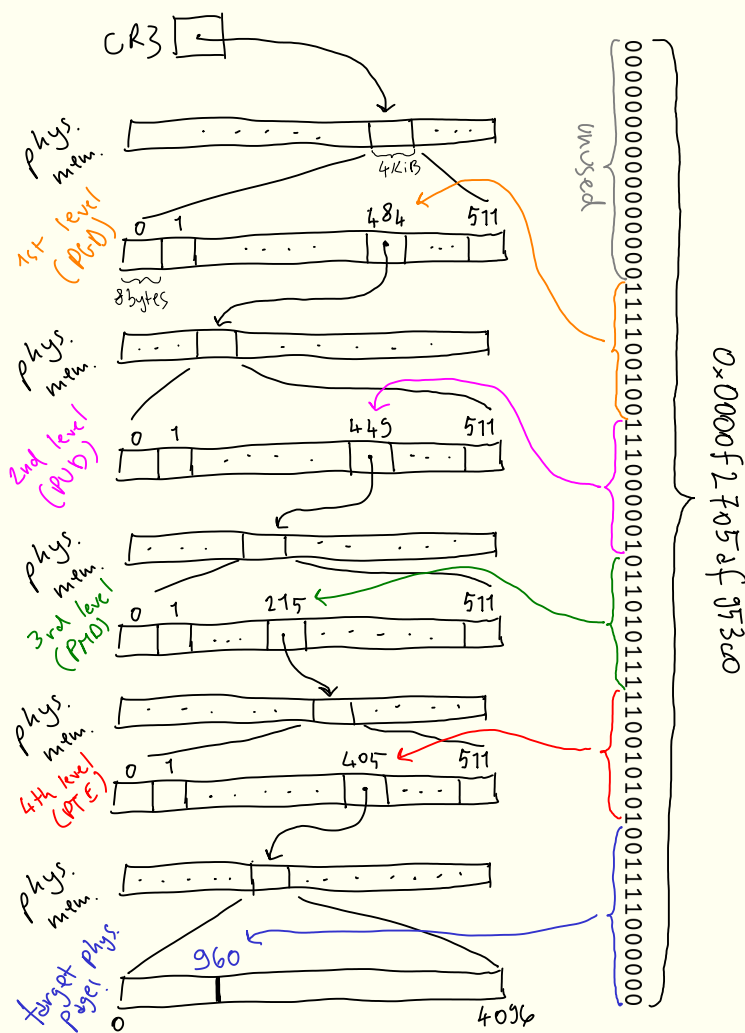 CR3
phys.
mem.
4KiB
1st level
(PGD)
0 1 484 511
8bytes
phys.
mem.
2nd level
(PUD)
0 1 449 511
phys.
mem.
3rd level
(PMD)
0 1 215 511
phys.
mem.
4th level
(PTE)
0 1 405 511
phys.
mem.
target phys.
page:
960
0 4096
unused
0000000000000000111100100111000001011010111110010101001111000000
0x0000f2705af953c0